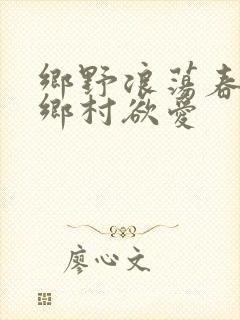 鄉野浪蕩春
鄉村欲愛
廖心文